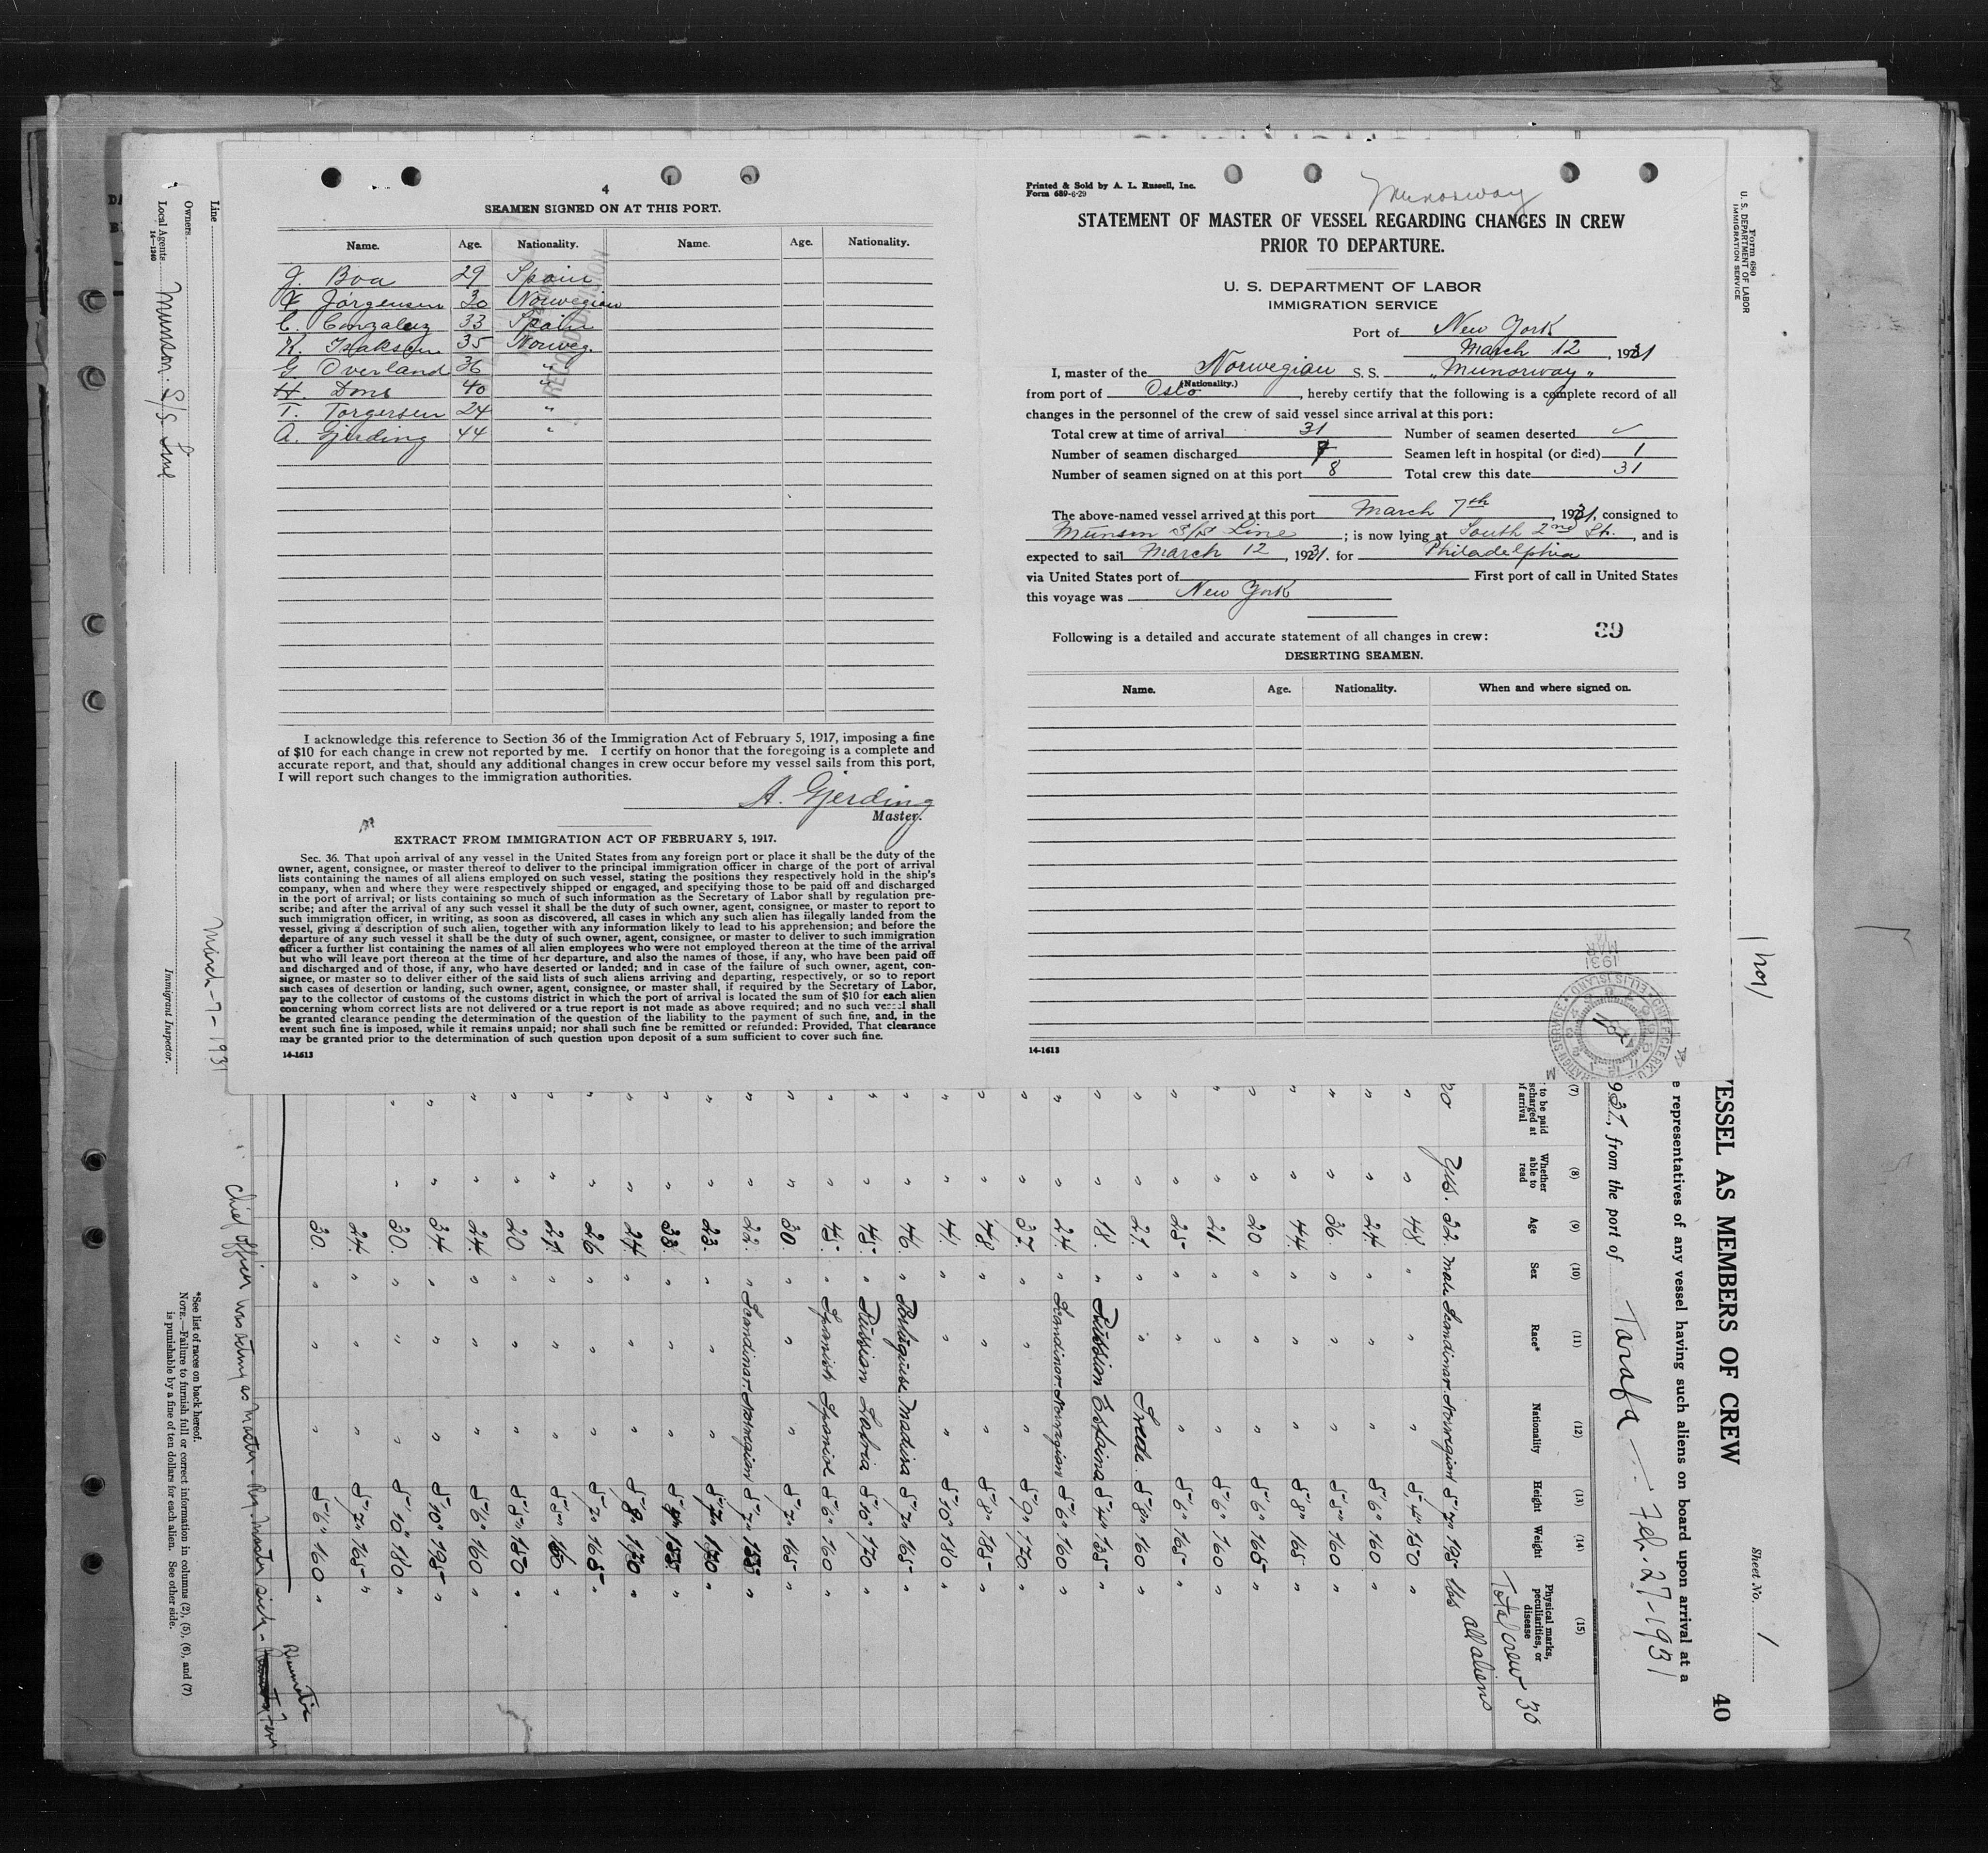 4
SEAMEN SIGNED ON AT THIS PORT.
Name. Age. Nationality. Name. Age. Nationality.
J. Boa 29 Spain
Jörgensen 30 Norwegian
C. Gonzalez 33 Spain
K. Isaksen 35 Norweg.
G Overland 36 "
H. Dons 40 "
T. Torgersen 24 "
A. Gjerding 44 "
I acknowledge this reference to Section 36 of the Immigration Act of February 5, 1917, imposing a fine
of $10 for each change in crew not reported by me. I certify on honor that the foregoing is a complete and
accurate report, and that, should any additional changes in crew occur before my vessel sails from this port,
I will report such changes to the immigration authorities.
A. Gjerding
Master.
EXTRACT FROM IMMIGRATION ACT OF FEBRUARY 5, 1917.
Sec. 36. That upon arrival of any vessel in the United States from any foreign port or place it shall be the duty of the
owner, agent, consignee, or master thereof to deliver to the principal immigration officer in charge of the port of arrival
lists containing the names of all aliens employed on such vessel, stating the positions they respectively hold in the ship's
company, when and where they were respectively shipped or engaged, and specifying those to be paid off and discharged
in the port of arrival; or lists containing so much of such information as the Secretary of Labor shall by regulation pre-
scribe; and after the arrival of any such vessel it shall be the duty of such owner, agent, consignee, or master to report to
such immigration officer, in writing, as soon as discovered, all cases in which any such alien has illegally landed from the
vessel, giving a description of such alien, together with any information likely to lead to his apprehension; and before the
departure of any such vessel it shall be the duty of such owner, agent, consignee, or master to deliver to such immigration
officer a further list containing the names of all alien employees who were not employed thereon at the time of the arrival
but who will leave port thereon at the time of her departure, and also the names of those, if any, who have been paid off
and discharged and of those, if any, who have deserted or landed; and in case of the failure of such owner, agent, con-
signee, or master so to deliver either of the said lists of such aliens arriving and departing, respectively, or so to report
such cases of desertion or landing, such owner, agent, consignee, or master shall, if required by the Secretary of Labor,
pay to the collector of customs of the customs district in which the port of arrival is located the sum of $10 for each alien
concerning whom correct lists are not delivered or a true report is not made as above required; and no such vessel shall
be granted clearance pending the determination of the question of the liability to the payment of such fine, and, in the
event such fine is imposed, while it remains unpaid; nor shall such fine be remitted or refunded: Provided, That clearance
may be granted prior to the determination of such question upon deposit of a sum sufficient to cover such fine.
14-1613
Printed & Sold by A. L. Russell, Inc.
Form 689-6-29
Munorway
STATEMENT OF MASTER OF VESSEL REGARDING CHANGES IN CREW
PRIOR TO DEPARTURE.
U. S. DEPARTMENT OF LABOR
IMMIGRATION SERVICE
Port of New York
March 12, 1931
I, master of the Norwegian S. S. "Munorway"
(Nationality.)
from port of Oslo, hereby certify that the following is a complete record of all
changes in the personnel of the crew of said vessel since arrival at this port:
Total crew at time of arrival 31 Number of seamen deserted ✓
Number of seamen discharged 7 Seamen left in hospital (or died) 1
Number of seamen signed on at this port 8 Total crew this date 31
The above-named vessel arrived at this port March 7th, 1931, consigned to
Munson S/S Line; is now lying at South 2nd St., and is
expected to sail March 12, 1931. for Philadelphia
via United States port of First port of call in United States
this voyage was New York
Following is a detailed and accurate statement of all changes in crew:
39
DESERTING SEAMEN.
Name. Age. Nationality. When and where signed on.
14-1613
MAR 1931
ELLIS ISLAND
Form 680
U. S. DEPARTMENT OF LABOR
IMMIGRATION SERVICE
Line
Owners
Local Agents Munson S/S Line
14-1240
March-7-1931
Immigrant Inspector.
Sheet No. 1
40
ESSEL AS MEMBERS OF CREW
e representatives of any vessel having such aliens on board upon arrival at a
931, from the port of Tarafa Feb. 27-1931
(7) (8) (9) (10) (11) (12) (13) (14) (15)
to be paid
scharged at
of arrival
Whether able to read
Age
Sex
Race*
Nationality
Height
Weight
Physical marks, peculiarities, or disease
Total crew 30
all aliens
no yes. 32. male Scandinav. Norwegian 5-7" 195 lbs
" " 48. " " " 5-4" 150 "
" " 24. " " " 5-6" 160
" " 36. " " " 5-5" 160 "
" " 44. " " " 5-8" 165 "
" " 20. " " " 5-6" 165 "
" " 21. " " " 5-6" 160 "
" " 25 " " " 5-6" 165 "
" " 21. " " Swede. 5-8" 160 "
" " 18. " Russian 5-4" 135 "
" " 24. " Scandinav. Norwegian 5-6" 160 "
" " 37. " " " 5-9" 170 "
" " 48. " " " 5-8" 185 "
" " 41. " " " 5-10" 180 "
" " 46. " 5-7" 165 "
" " 45. " Russian 5-10" 170 "
" " 45. " Spanish 5-6" 160 "
" " 30. " " " 5-7" 165 "
" " 22. " Scandinav. Norwegian 5-7" "
" " 23. " " " 5-7" 170 "
" " 33. " " " "
" " 24. " " " 5-8" 170 "
" " 26 " " " 5-7" 165 "
" " 27. " " " 5-5" "
" " 20 " " " 5-5" 150 "
" " 24. " " " 5-6" 160 "
" " 34. " " " 5-10" 195 "
" " 30. " " " 5-10" 180 "
24. " " " 5-7" 165 "
30. " " " 5-6" 160 "
Chief officer was acting as master - Reg. master sick -
*See list of races on back hereof.
NOTE.—Failure to furnish full or correct information in columns (2), (5), (6), and (7)
is punishable by a fine of ten dollars for each alien. See other side.